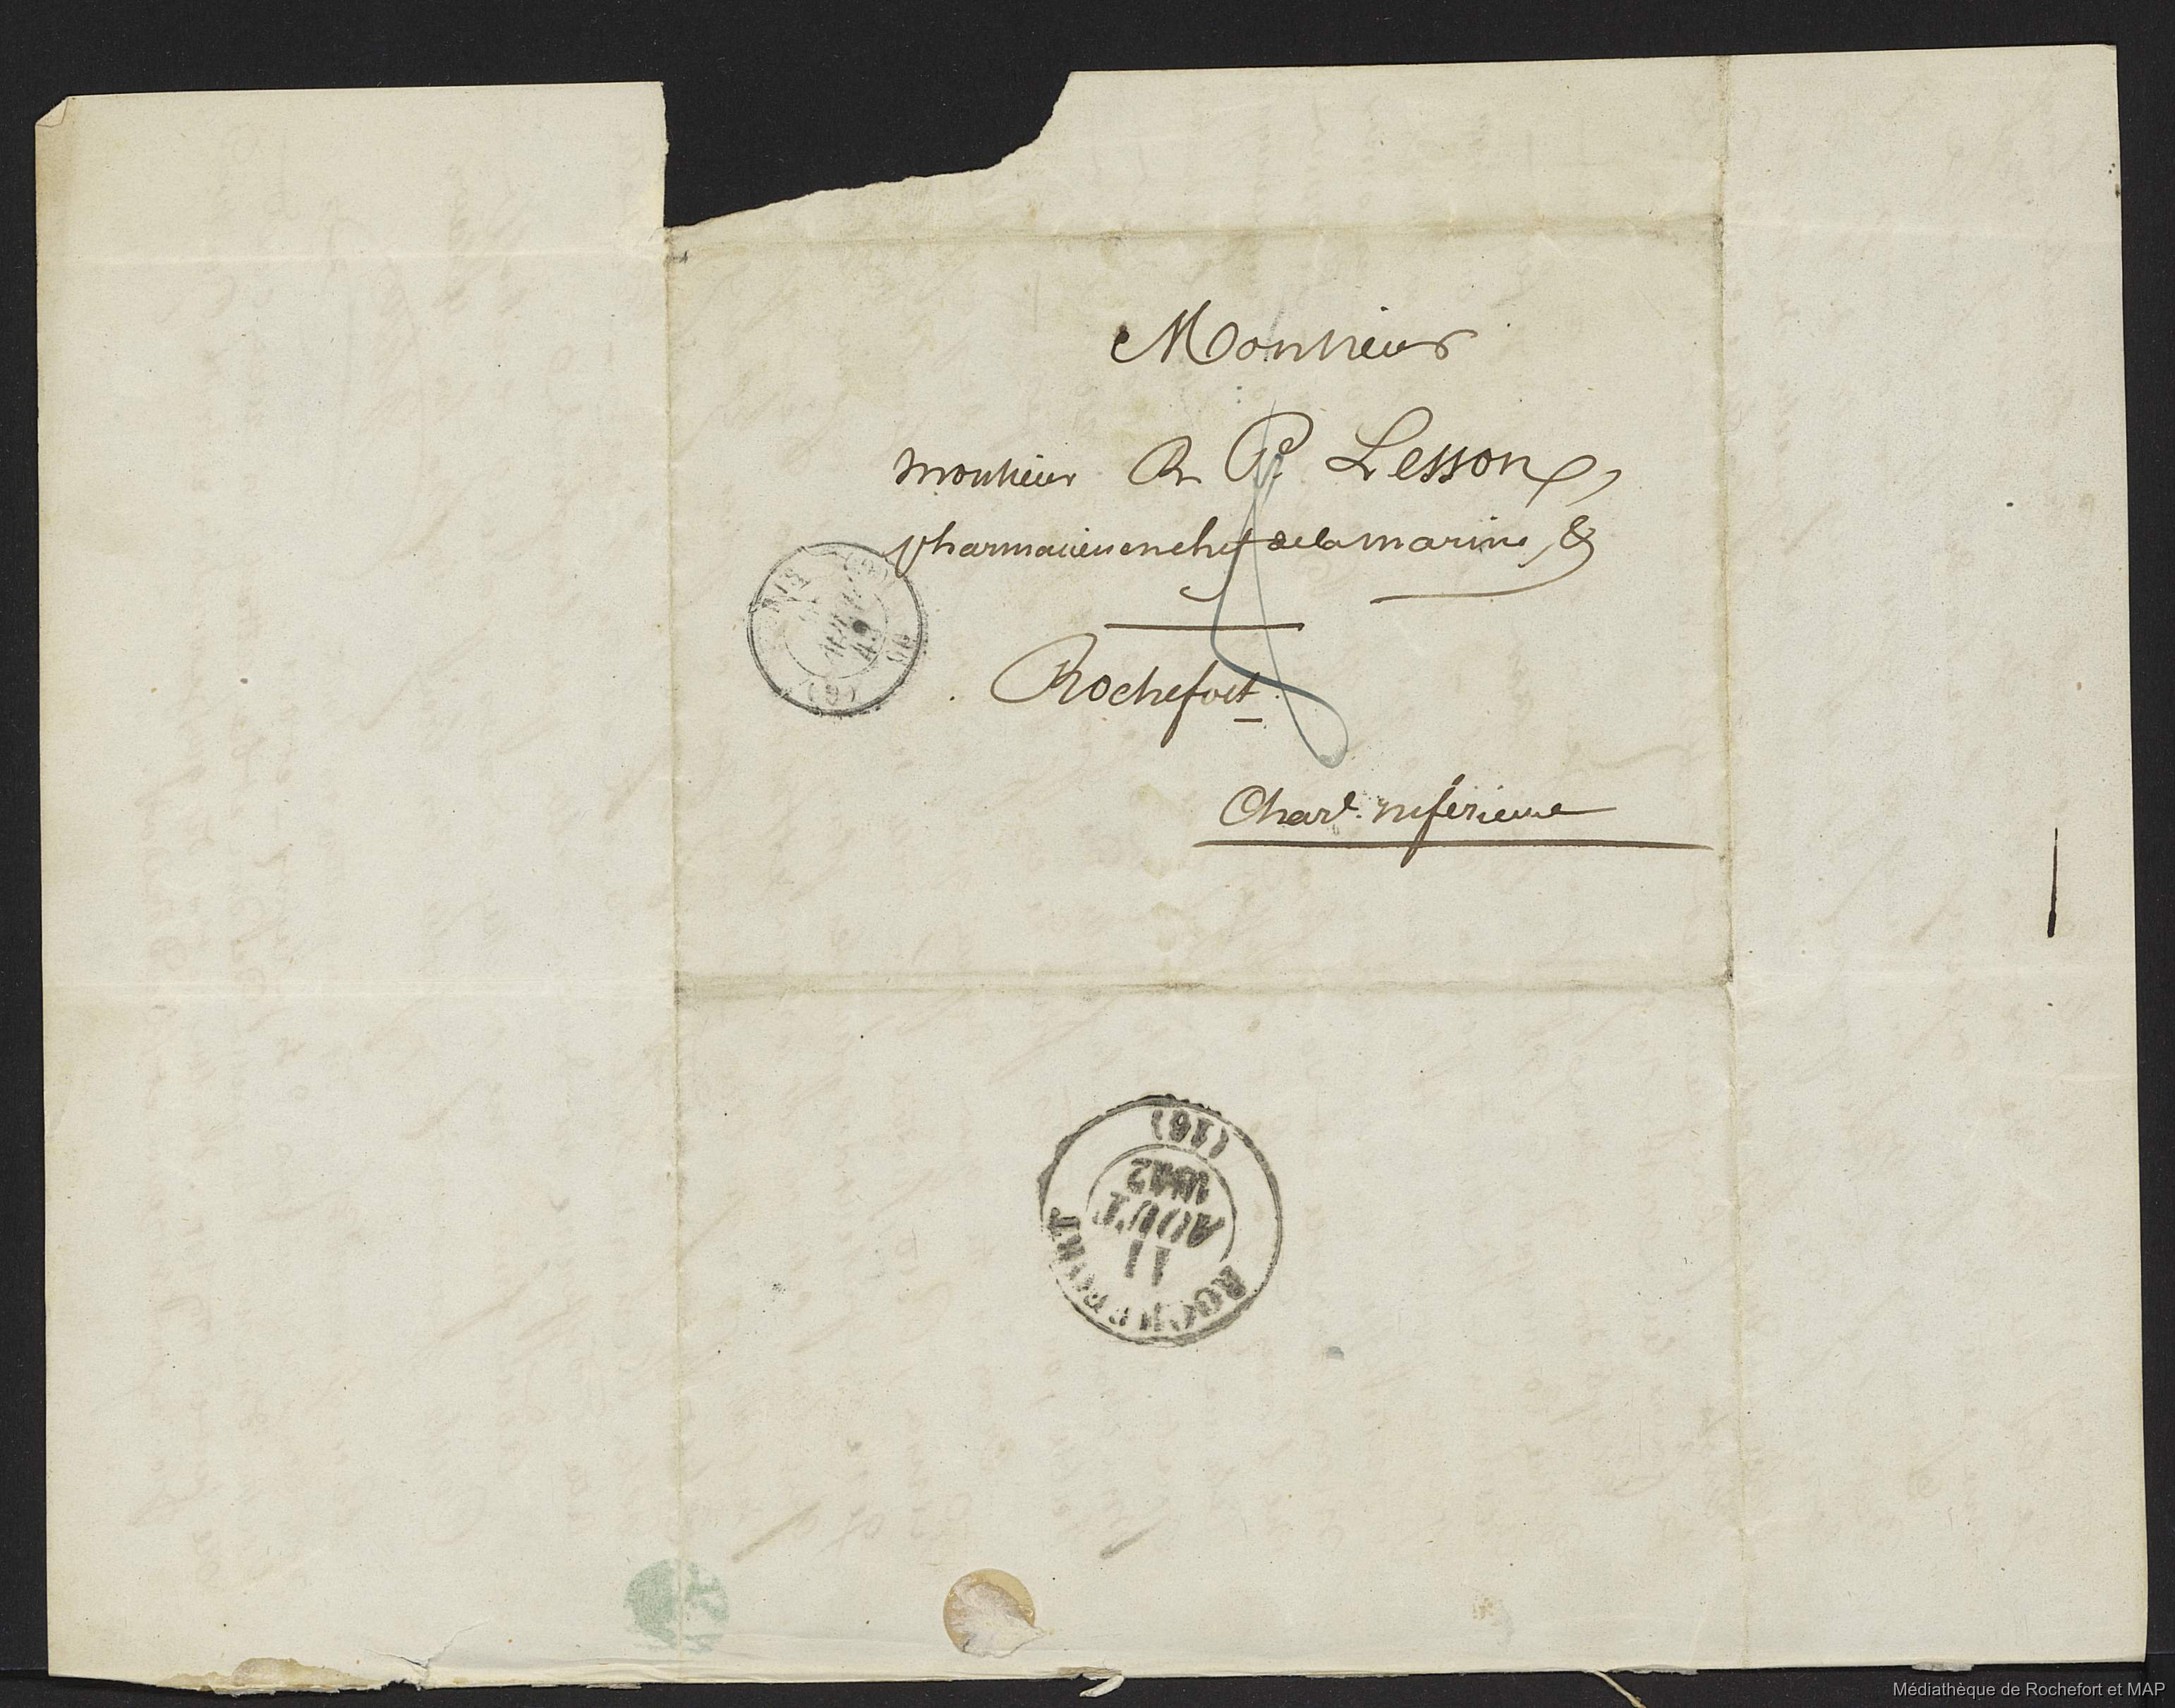 Monsieur
monsieur R P. Lesson,
pharmacien en chef de la marine, &
Rochefort
Char.te inférieure
PARIS
(60)
ROCHEFORT
11
AOUT
1842
(16)
Médiathèque de Rochefort et MAP